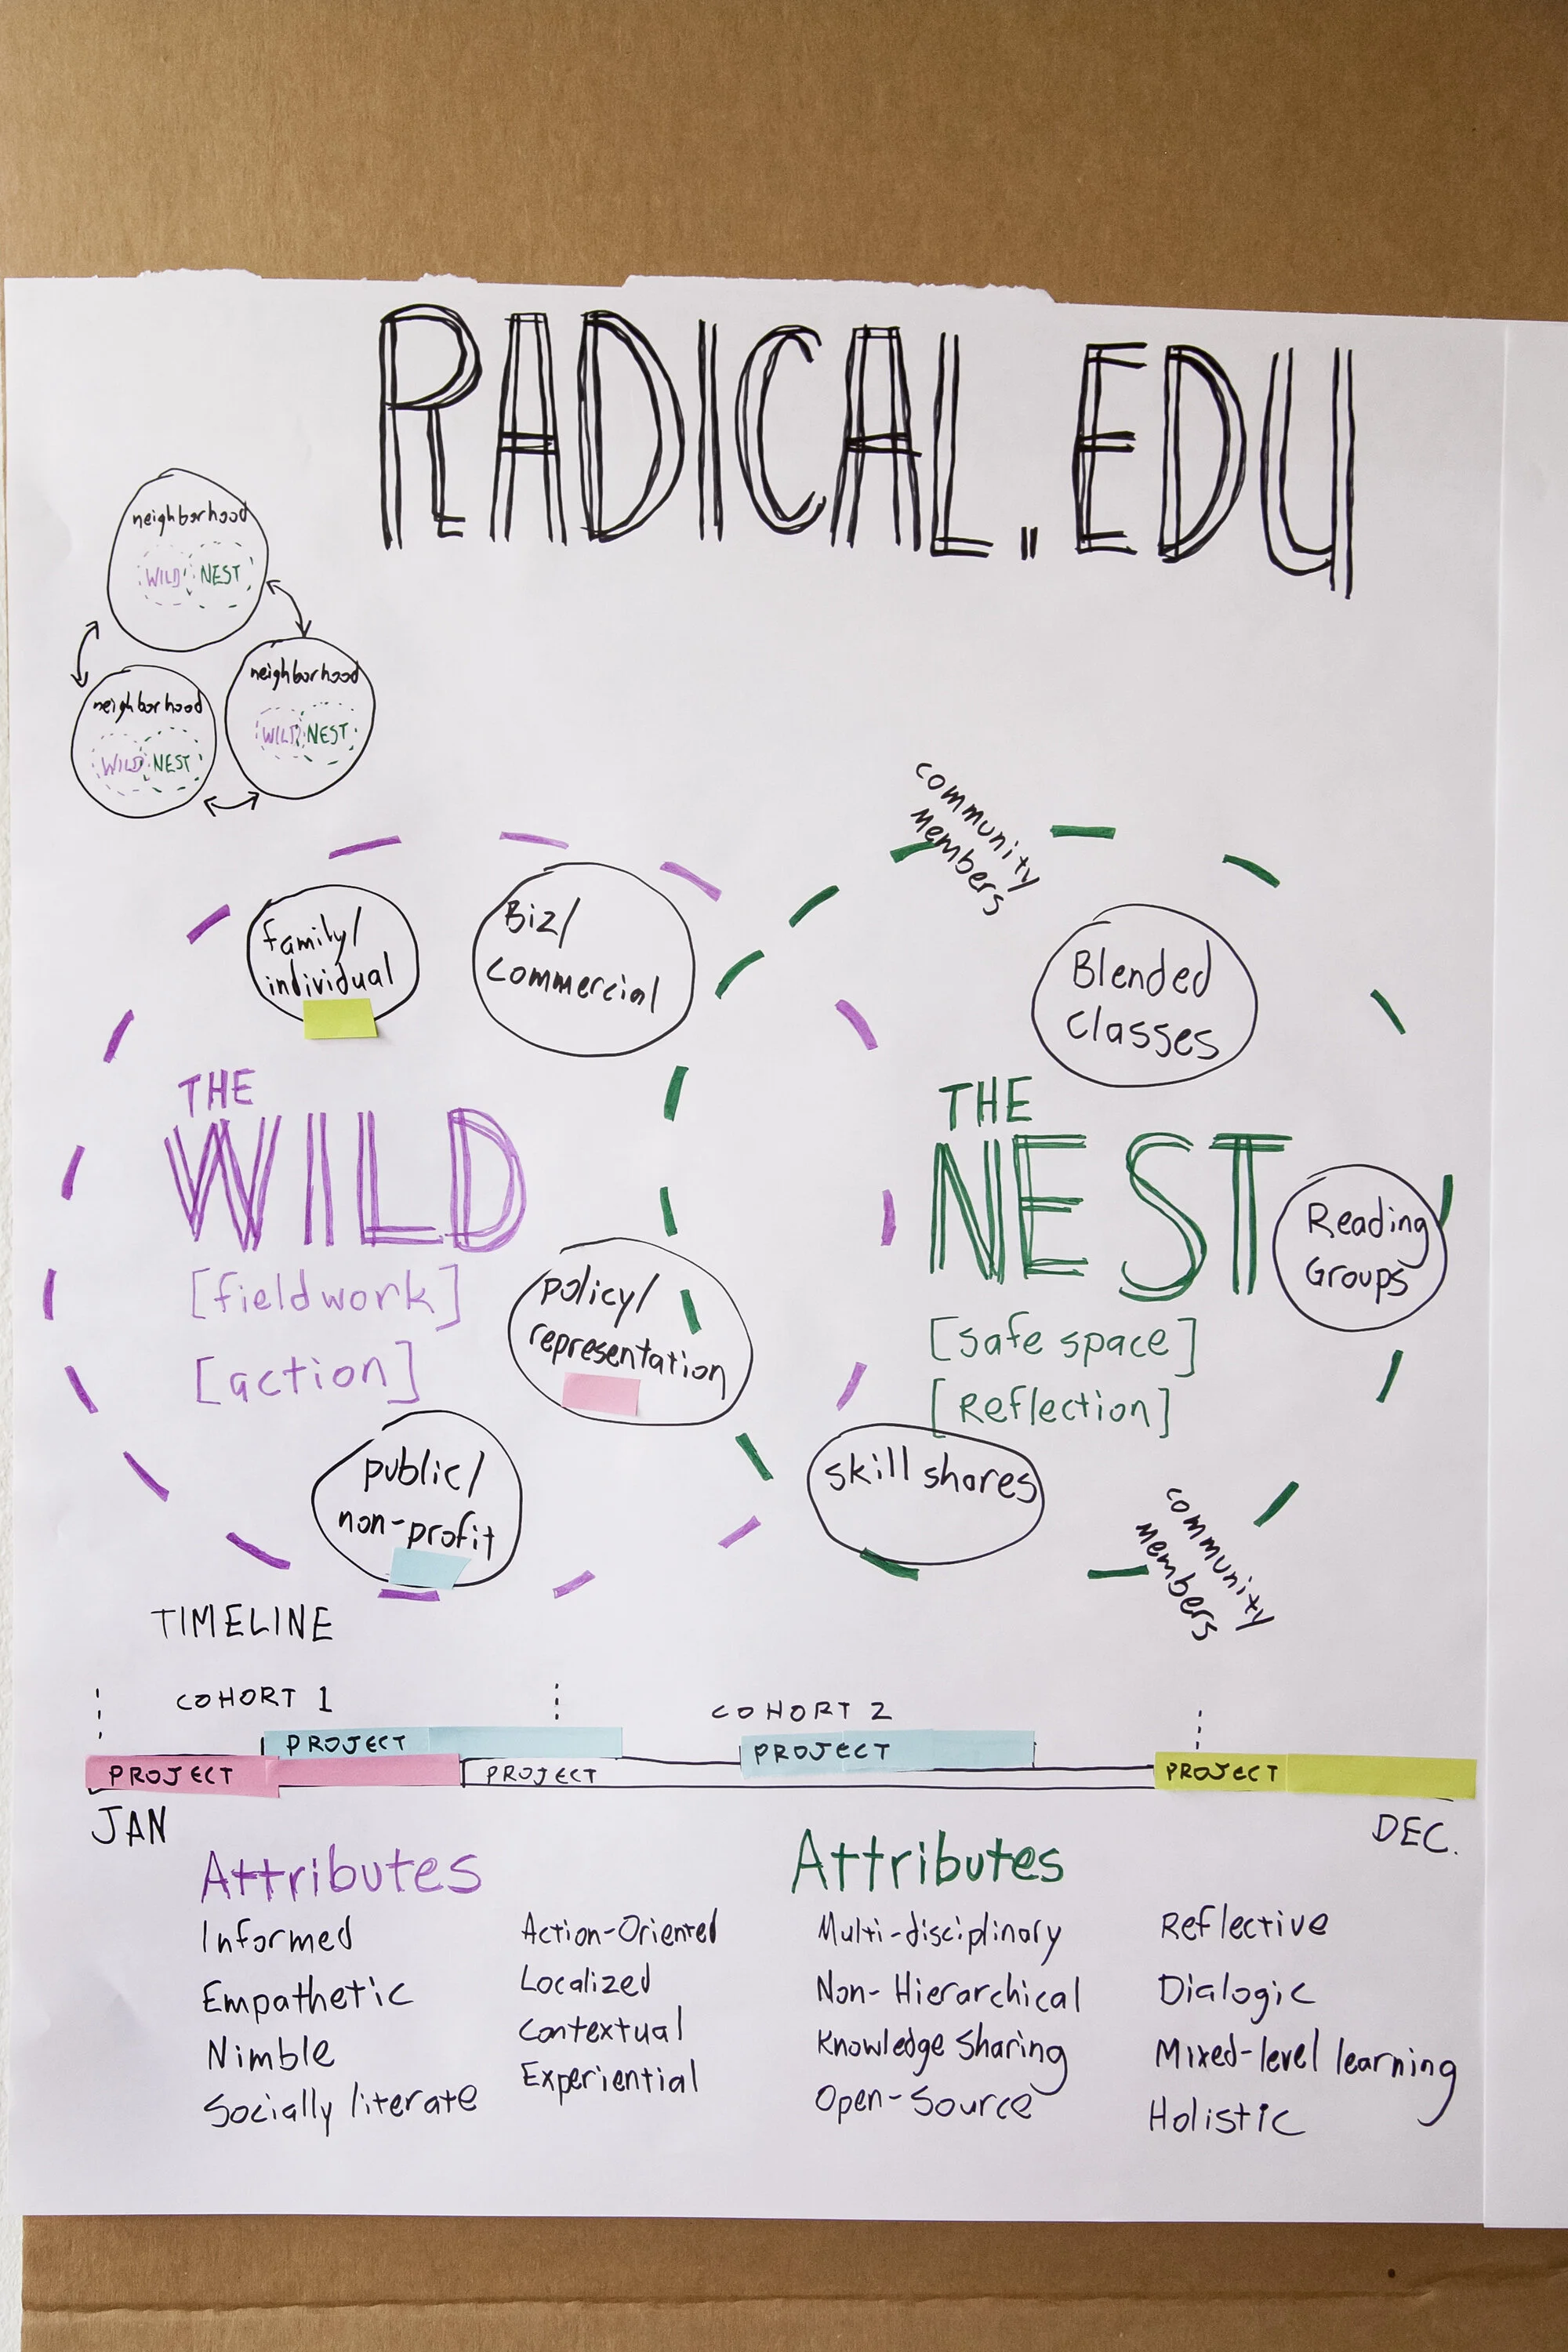 RADICAL.EDU
neighborhood
WILD NEST
neighborhood
WILD NEST
neighborhood
WILD NEST
community
Members
family/
individual
Biz/
commercial
Blended
classes
THE
WILD
[fieldwork]
[action]
policy/
representation
public/
non-profit
THE
NEST
[safe space]
[Reflection]
Reading
Groups
skill shares
community
members
TIMELINE
COHORT 1
COHORT 2
PROJECT
PROJECT
PROJECT
PROJECT
PROJECT
JAN
DEC.
Attributes
Informed
Empathetic
Nimble
Socially literate
Action-Oriented
Localized
Contextual
Experiential
Attributes
Multi-disciplinary
Non-Hierarchical
Knowledge Sharing
Open-Source
Reflective
Dialogic
Mixed-level learning
Holistic